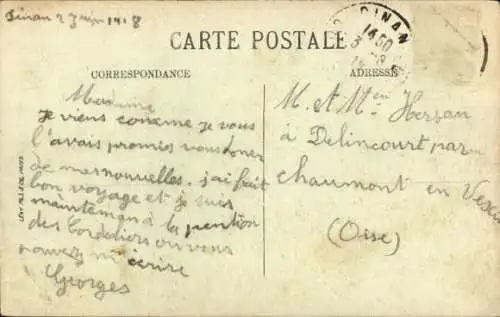 Dinan 2 Juin 1918
DINAN
14 50
3
CARTE POSTALE
CORRESPONDANCE
ADRESSE
Madame
je viens comme je vous
l'avais promies vous doner
de mes nouvelles. j'ai fait
bon voyage et je suis
maintenan à la pention
des Cordeliers ou vous
pouvez m'écrire
Georges
M. et Mme Hersan
à Delincourt par
chaumont en Vexin
(Oise)